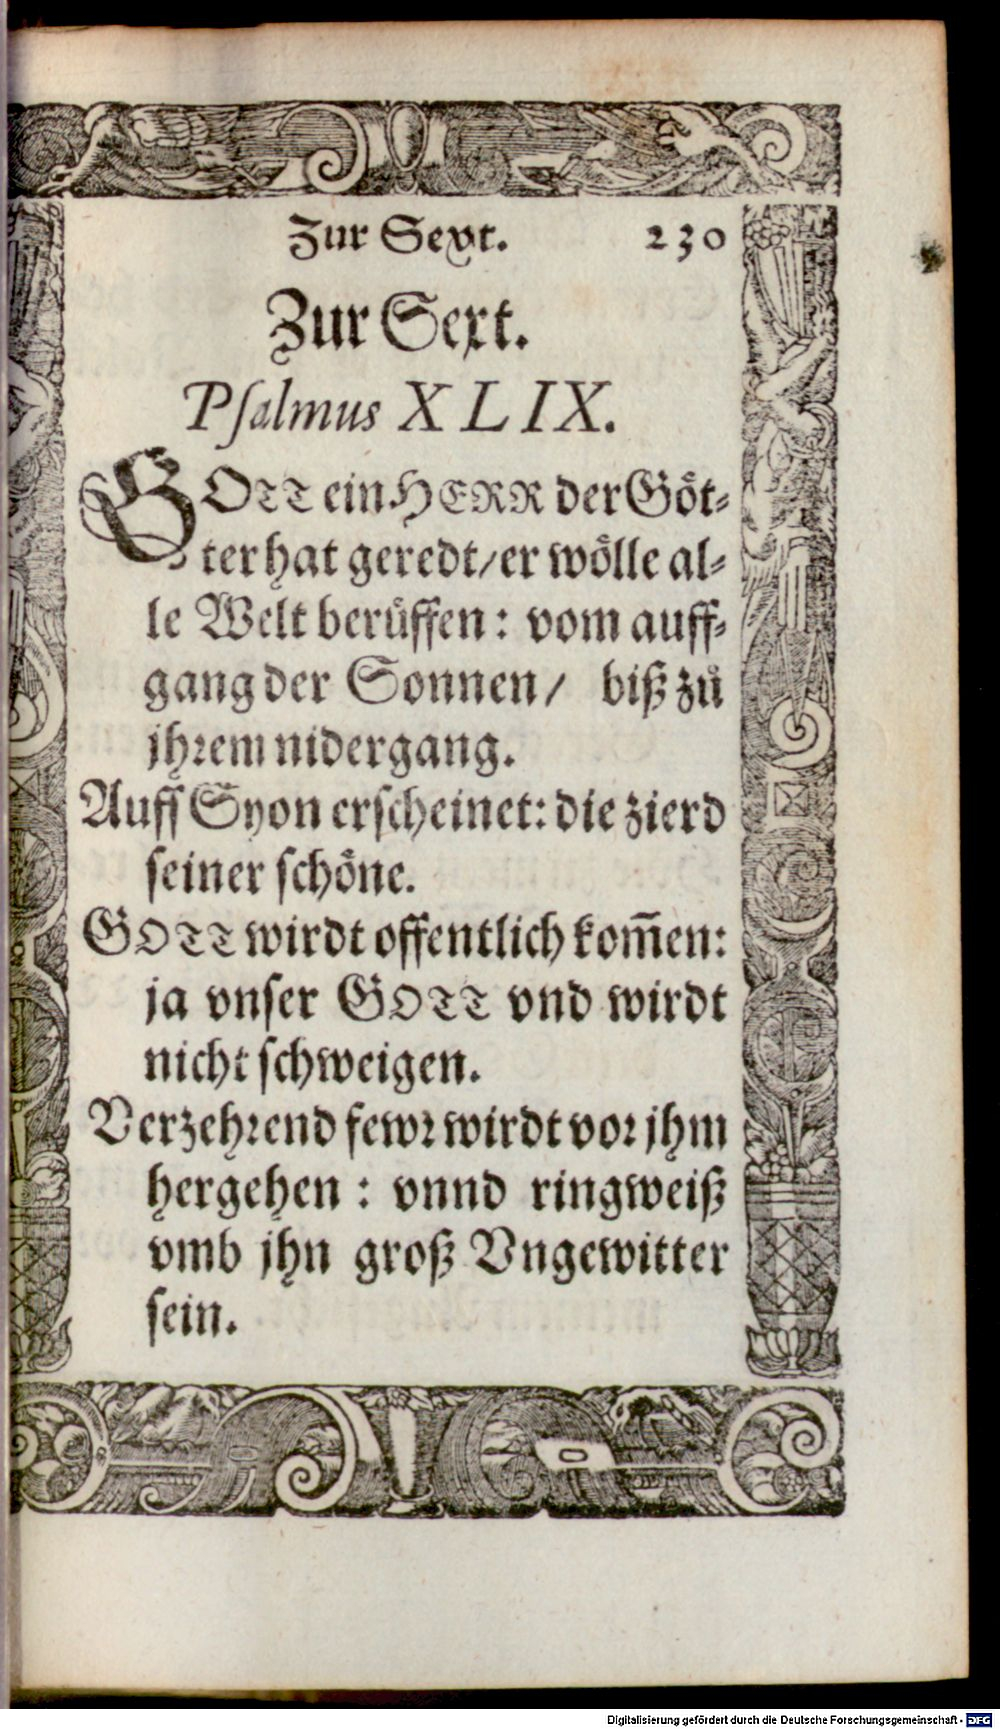 Zur Sext. 230
Zur Sext.
Psalmus XLIX.
GOTT ein HERR der Göt-
ter hat geredt/er wölle al-
le Welt berüffen: vom auff-
gang der Sonnen/ biß zů
jhrem nidergang.
Auff Syon erscheinet: die zierd
seiner schöne.
GOTT wirdt offentlich kom̃en:
ja vnser GOTT vnd wirdt
nicht schweigen.
Verzehrend fewr wirdt vor jhm
hergehen: vnnd ringweiß
vmb jhn groß Vngewitter
sein.
Digitalisierung gefördert durch die Deutsche Forschungsgemeinschaft - DFG